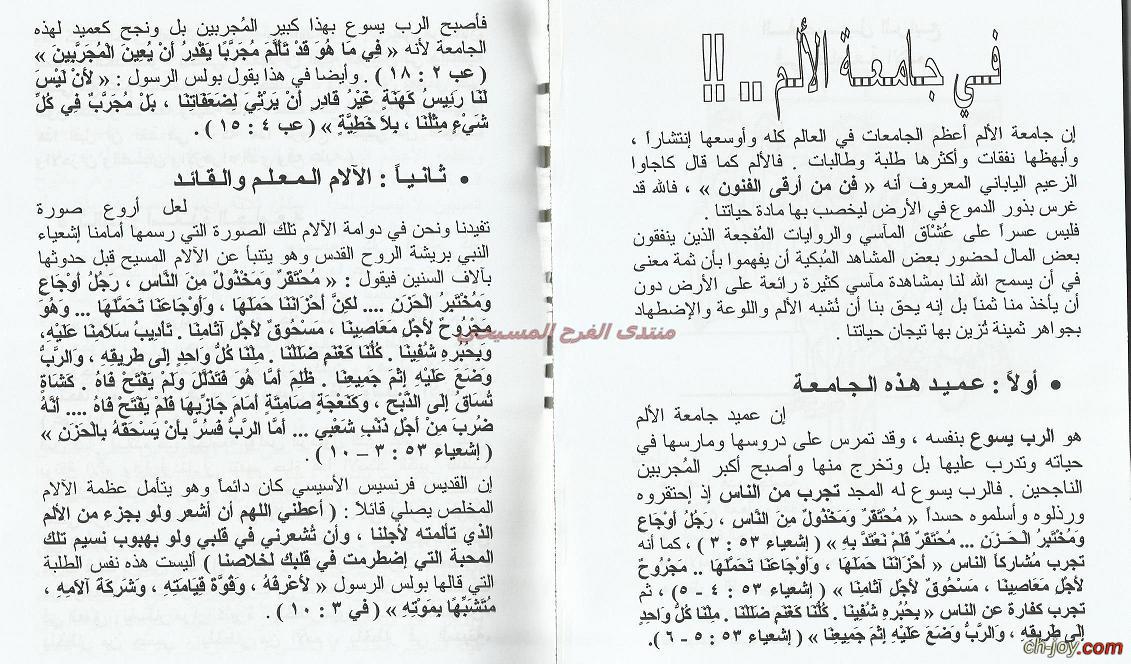 في جامعة الألم .. !!
إن جامعة الألم أعظم الجامعات في العالم كله وأوسعها إنتشاراً ،
وأبهظها نفقات وأكثرها طلبة وطالبات . فالألم كما قال كاجاوا
الزعيم الياباني المعروف أنه « فن من أرقى الفنون » ، فالله قد
غرس بذور الدموع في الأرض ليخصب بها مادة حياتنا .
فليس عسراً على عُشَّاق المآسي والروايات المُفجعة الذين ينفقون
بعض المال لحضور بعض المشاهد المُبكية أن يفهموا بأن ثمة معنى
في أن يسمح الله لنا بمشاهدة مآسي كثيرة رائعة على الأرض دون
أن يأخذ منا ثمناً بل إنه يحق بنا أن نُشبه الألم واللوعة والإضطهاد
بجواهر ثمينة تُزين بها تيجان حياتنا .
• أولاً : عميد هذه الجامعة
إن عميد جامعة الألم
هو الرب يسوع بنفسه ، وقد تمرس على دروسها ومارسها في
حياته وتدرب عليها بل وتخرج منها وأصبح أكبر المُجربين
الناجحين . فالرب يسوع له المجد تجرب من الناس إذ إحتقروه
ورذلوه وأسلموه حسداً « مُحْتَقَرٌ وَمَخْذُولٌ مِنَ النَّاسِ ، رَجُلُ أَوْجَاعٍ
وَمُخْتَبِرُ الْحَزَنِ ... مُحْتَقَرٌ فَلَمْ نَعْتَدَّ بِهِ » ( إشعياء ٥٣ : ٣ ) ، كما أنه
تجرب مُشاركاً الناس « أَحْزَانَنَا حَمَلَهَا ، وَأَوْجَاعَنَا تَحَمَّلَهَا .. مَجْرُوحٌ
لأَجْلِ مَعَاصِينَا ، مَسْحُوقٌ لأَجْلِ آثَامِنَا » ( إشعياء ٥٣ : ٤ - ٥ ) ، ثم
تجرب كفارة عن الناس « بِحُبُرِهِ شُفِينَا . كُلُّنَا كَغَنَمٍ ضَلَلْنَا . مِلْنَا كُلُّ وَاحِدٍ
إِلَى طَرِيقِهِ ، وَالرَّبُّ وَضَعَ عَلَيْهِ إِثْمَ جَمِيعِنَا » ( إشعياء ٥٣ : ٥ - ٦ ) .
فأصبح الرب يسوع بهذا كبير المُجربين بل ونجح كعميد لهذه
الجامعة لأنه « فِي مَا هُوَ قَدْ تَأَلَّمَ مُجَرَّبًا يَقْدِرُ أَنْ يُعِينَ الْمُجَرَّبِينَ »
( عب ٢ : ١٨ ) . وأيضا في هذا يقول بولس الرسول : « لأَنْ لَيْسَ
لَنَا رَئِيسُ كَهَنَةٍ غَيْرُ قَادِرٍ أَنْ يَرْثِيَ لِضَعَفَاتِنَا ، بَلْ مُجَرَّبٌ فِي كُلِّ
شَيْءٍ مِثْلُنَا ، بِلاَ خَطِيَّةٍ » ( عب ٤ : ١٥ ) .
• ثانياً : الآلام المعلم والقائد
لعل أروع صورة
تفيدنا ونحن في دوامة الآلام تلك الصورة التي رسمها أمامنا إشعياء
النبي بريشة الروح القدس وهو يتنبأ عن الآلام المسيح قبل حدوثها
بآلاف السنين فيقول : « مُحْتَقَرٌ وَمَخْذُولٌ مِنَ النَّاسِ ، رَجُلُ أَوْجَاعٍ
وَمُخْتَبِرُ الْحَزَنِ .... لكِنَّ أَحْزَانَنَا حَمَلَهَا ، وَأَوْجَاعَنَا تَحَمَّلَهَا ... وَهُوَ
مَجْرُوحٌ لأَجْلِ مَعَاصِينَا ، مَسْحُوقٌ لأَجْلِ آثَامِنَا . تَأْدِيبُ سَلاَمِنَا عَلَيْهِ،
وَبِحُبُرِهِ شُفِينَا . كُلُّنَا كَغَنَمٍ ضَلَلْنَا . مِلْنَا كُلُّ وَاحِدٍ إِلَى طَرِيقِهِ ، وَالرَّبُّ
وَضَعَ عَلَيْهِ إِثْمَ جَمِيعِنَا . ظُلِمَ أَمَّا هُوَ فَتَذَلَّلَ وَلَمْ يَفْتَحْ فَاهُ . كَشَاةٍ
تُسَاقُ إِلَى الذَّبْحِ ، وَكَنَعْجَةٍ صَامِتَةٍ أَمَامَ جَازِّيهَا فَلَمْ يَفْتَحْ فَاهُ .... أَنَّهُ
ضُرِبَ مِنْ أَجْلِ ذَنْبِ شَعْبِي ... أَمَّا الرَّبُّ فَسُرَّ بِأَنْ يَسْحَقَهُ بِالْحَزَنِ »
( إشعياء ٥٣ : ٣ – ١٠ ) .
إن القديس فرنسيس الأسيسي كان دائماً وهو يتأمل عظمة الآلام
المخلص يصلي قائلاً : ( أعطني اللهم أن أشعر ولو بجزء من الألم
الذي تألمته لأجلنا ، وأن تُشعرني في قلبي ولو بهبوب نسيم تلك
المحبة التي إضطرمت في قلبك لخلاصنا ) أليست هذه نفس الطلبة
التي قالها بولس الرسول « لأَعْرِفَهُ ، وَقُوَّةَ قِيَامَتِهِ ، وَشَرِكَةَ آلاَمِهِ ،
مُتَشَبِّهًا بِمَوْتِهِ » ( في ٣ : ١٠ ) .
منتدى الفرح المسيحي
ch-joy.com